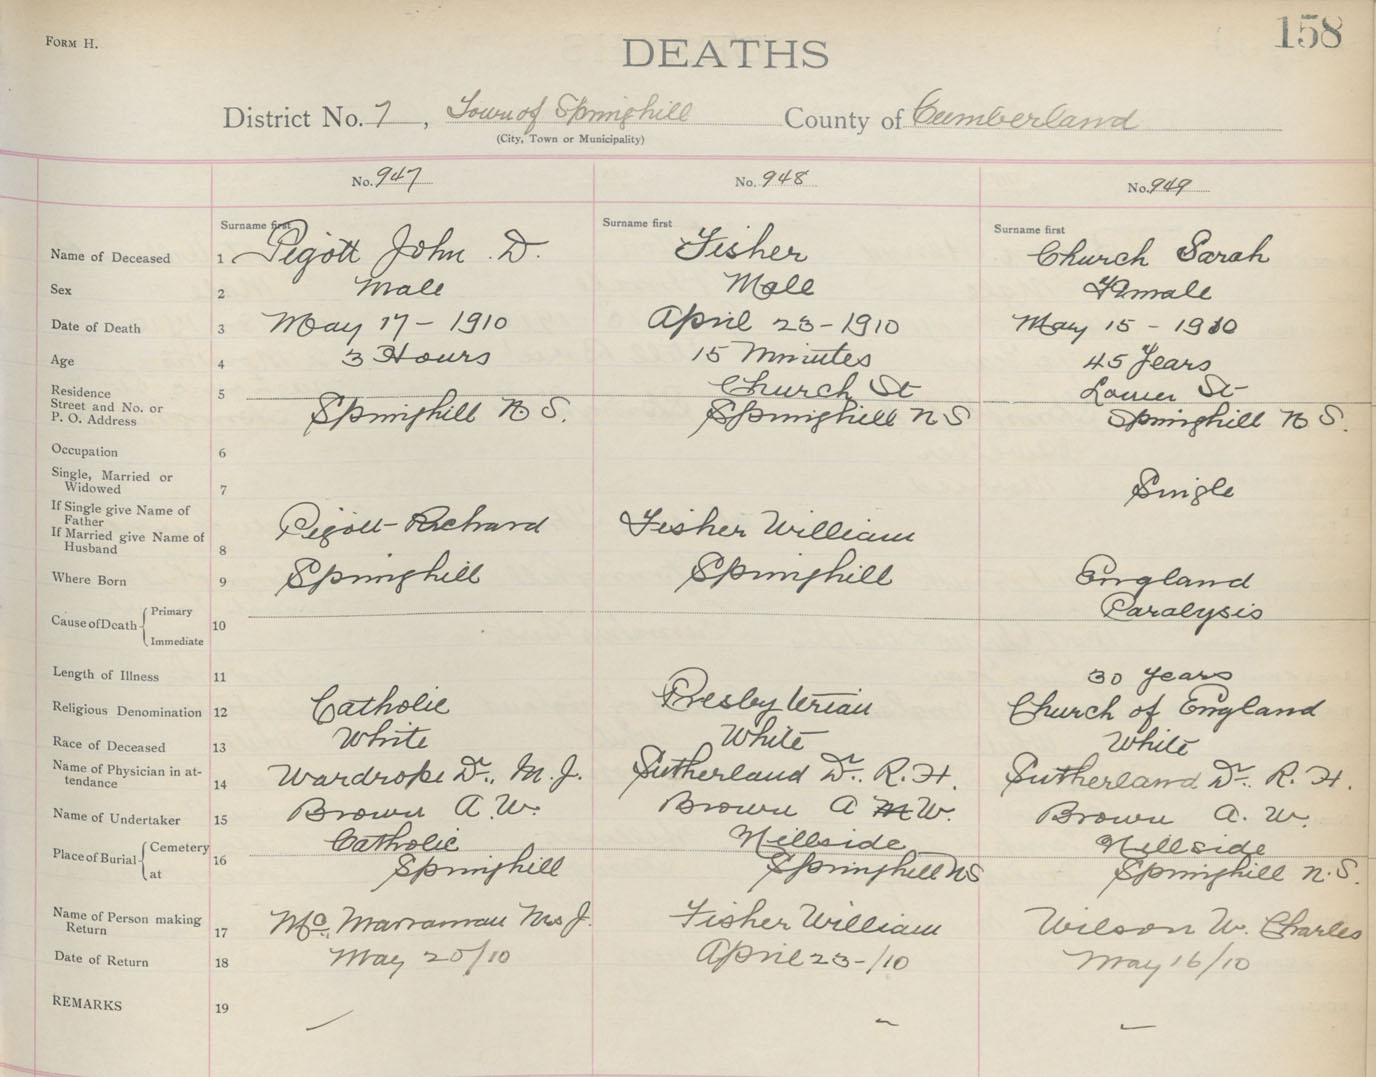 FORM H.
158
DEATHS
District No. 7, Town of Springhill County of Cumberland
(City, Town or Municipality)
No. 947 No. 948 No. 949
Surname first Surname first Surname first
Name of Deceased 1 Pigott John D. Fisher Church Sarah
Sex 2 Male Male Female
Date of Death 3 May 17 - 1910 April 23 - 1910 May 15 - 1910
Age 4 3 Hours 15 Minutes 45 Years
Residence 5 Church St Lower St
Street and No. or
P. O. Address Springhill N S. Springhill N S Springhill N S.
Occupation 6
Single, Married or
Widowed 7 Single
If Single give Name of
Father
If Married give Name of
Husband 8 Pigott - Richard Fisher William
Where Born 9 Springhill Springhill England
Cause of Death { Primary Paralysis
10
Immediate
Length of Illness 11 30 years
Religious Denomination 12 Catholic Presbyterian Church of England
Race of Deceased 13 White White White
Name of Physician in at-
tendance 14 Wardrope Dr. M. J. Sutherland Dr. R. H. Sutherland Dr. R. H.
Name of Undertaker 15 Brown A. W. Brown A W. Brown A. W.
Place of Burial { Cemetery Catholic Hillside Hillside
at 16 Springhill Springhill NS Springhill N. S.
Name of Person making
Return 17 Mc Mrs J. Fisher William Wilson W. Charles
Date of Return 18 May 20/10 April 23-/10 May 16/10
REMARKS 19